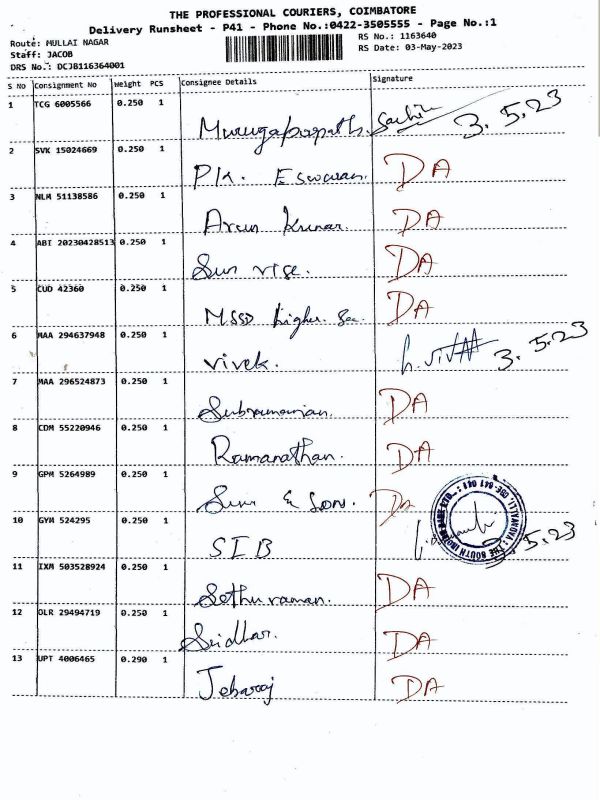 THE PROFESSIONAL COURIERS, COIMBATORE
Delivery Runsheet - P41 - Phone No.:0422-3505555 - Page No.:1
Route: MULLAI NAGAR RS No.: 1163640
Staff: JACOB RS Date: 03-May-2023
DRS No.: DCJB116364001
S No Consignment No Weight PCS Consignee Details Signature
1 TCG 6005566 0.250 1
Murugaboopath 3.5.23
2 SVK 15024669 0.250 1
P.K. Eswaran. DA
3 NLM 51138586 0.250 1
Arun Kumar. DA
4 ABI 20230428513 0.250 1
Sun rise. DA
5 CUD 42360 0.250 1
MSSD higher Sec DA
6 MAA 294637948 0.250 1
Vivek. 3.5.23
7 MAA 296524873 0.250 1
Subramanian. DA
8 CDM 55220946 0.250 1
Ramanathan. DA
9 GPM 5264989 0.250 1
Sun & Son. DA
10 GYM 524295 0.250 1
SIB 5.23
11 IXM 503528924 0.250 1
Sethuraman. DA
12 OLR 29494719 0.250 1
Sridhar. DA
13 UPT 4006465 0.290 1
Jebaraj DA